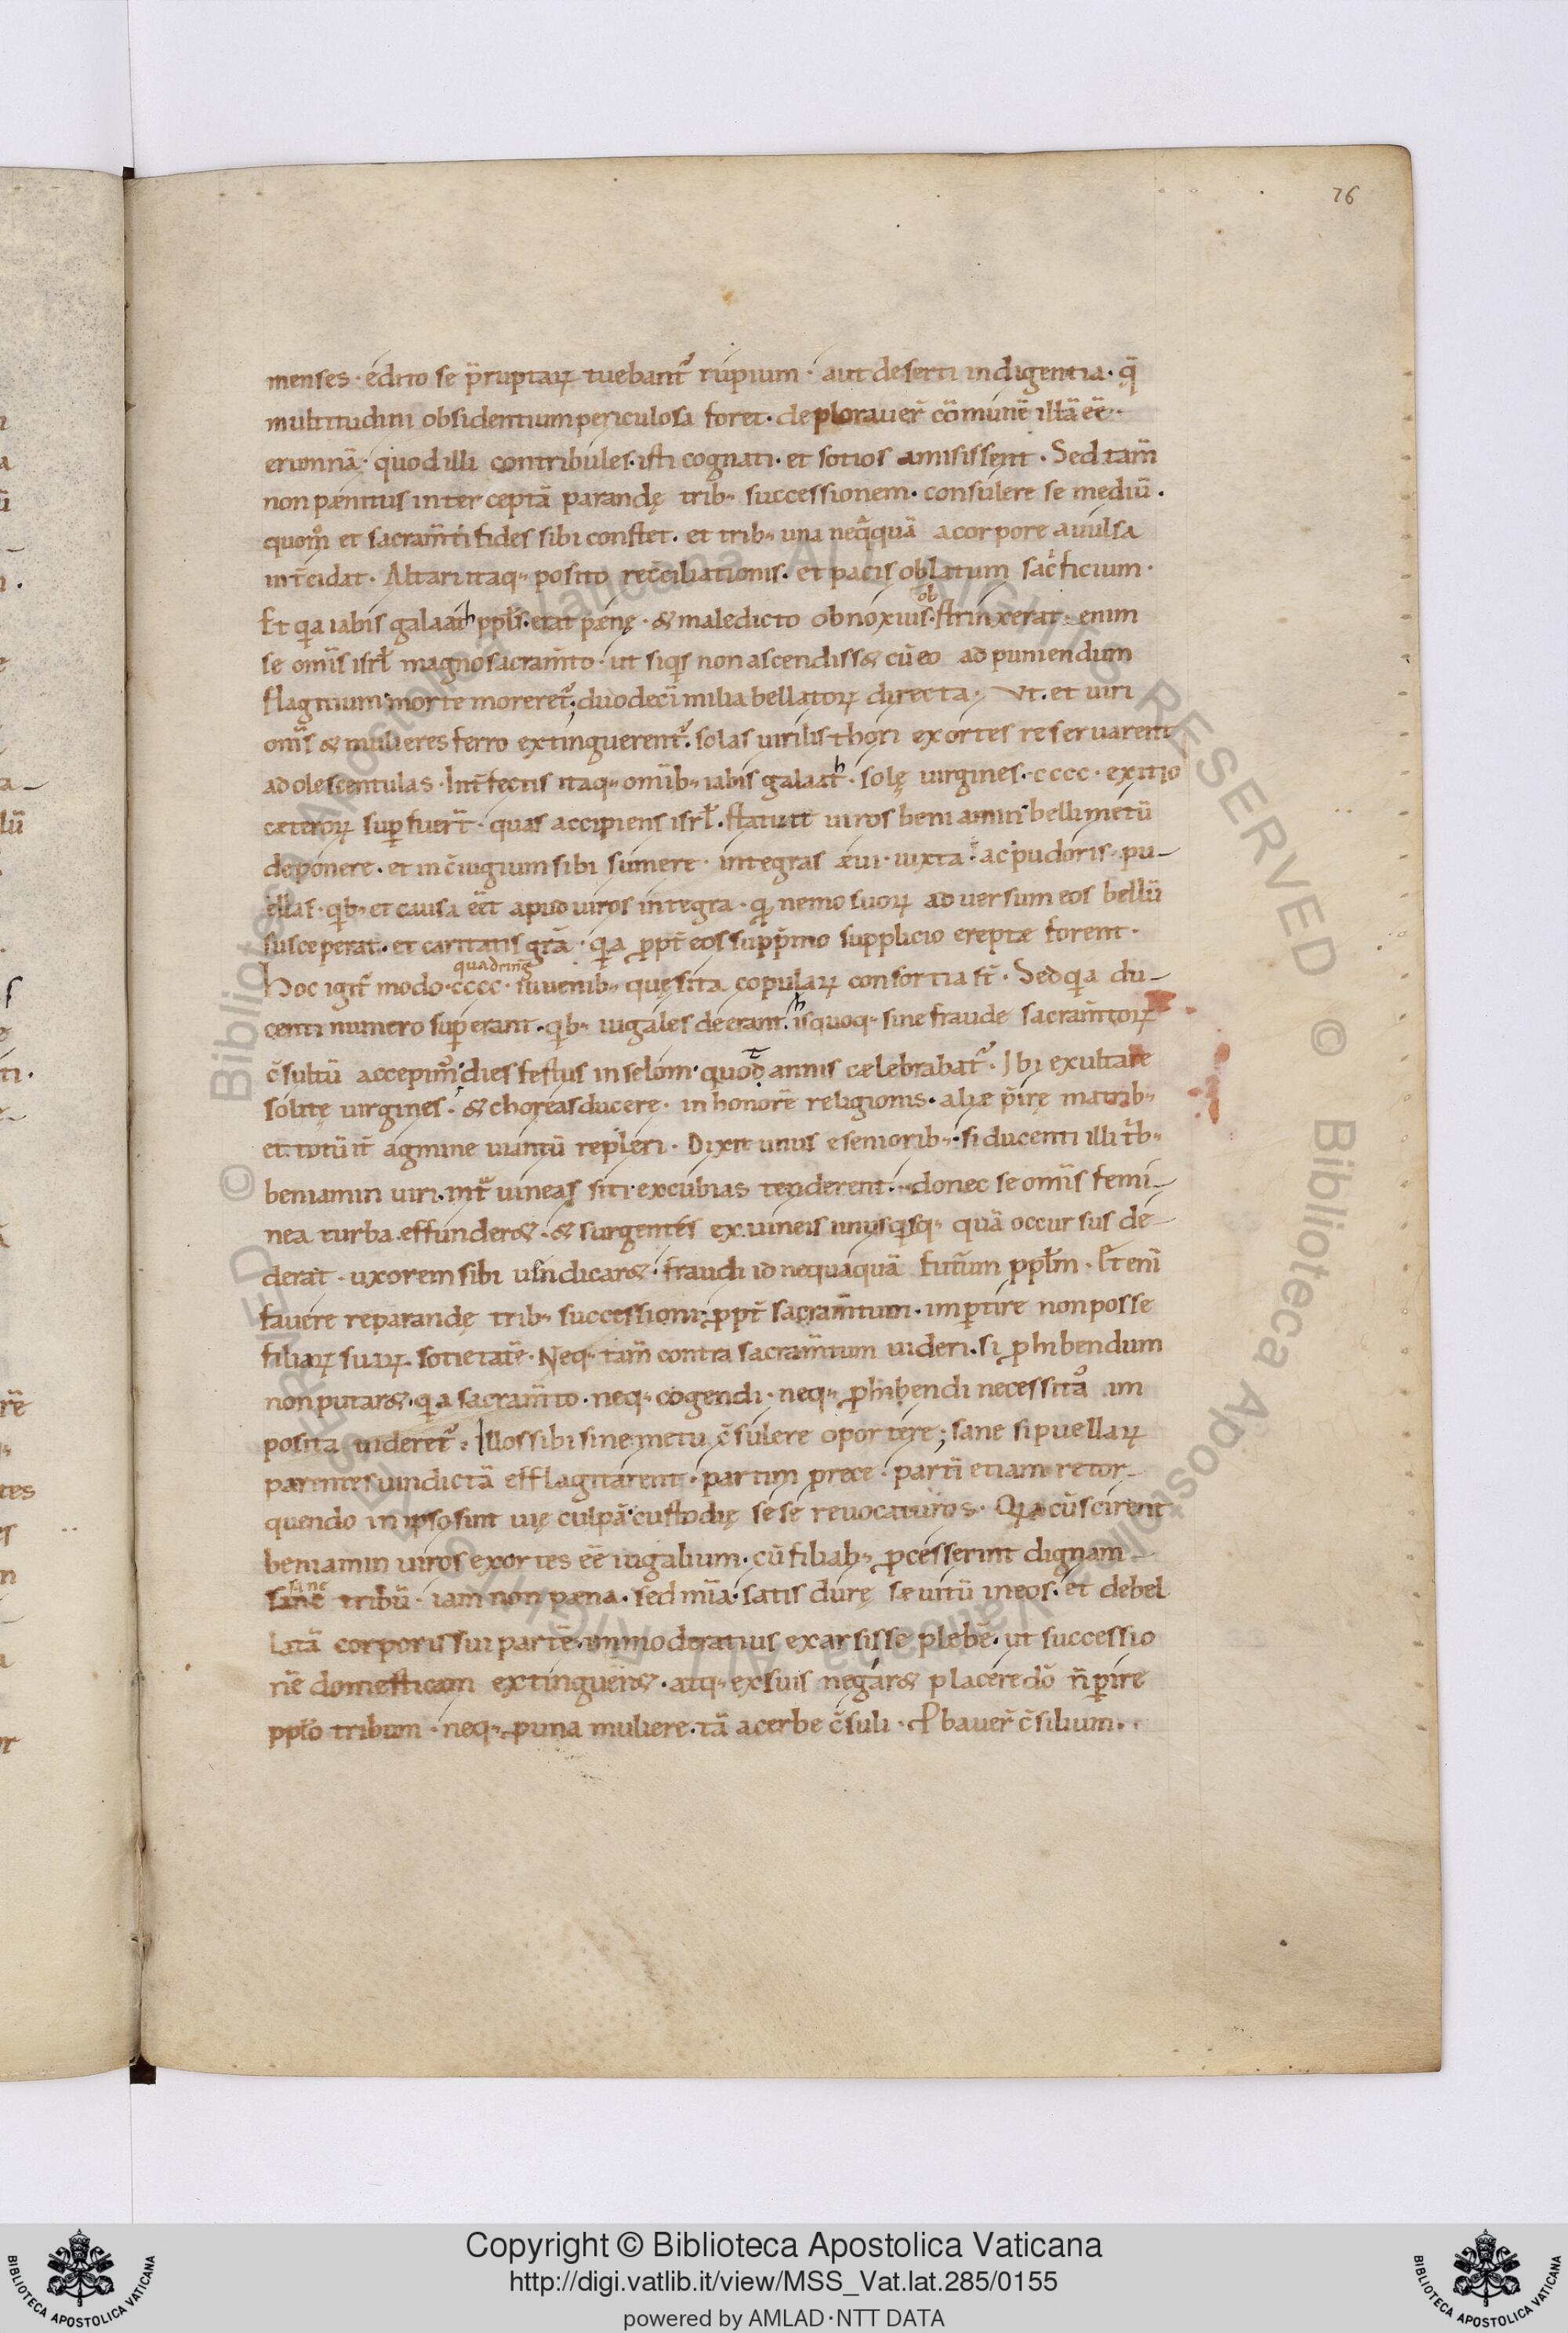 76
menses · edito se p̄ruptaꝝ tuebant᷑ rupium · aut deserti indigentia · q̨̄
multitudini obsidentium periculosa foret · deplorauer̄ cōmunē illā eē
erumnā · quod illi contribules · isti cognati · et sotios amisissent · Sed tam̄
non pænitus interceptā parandę trib; successionem · consulere se mediū ·
quom̊ et sacram̄ti fides sibi constet · et trib; una neq̄quā a corpore auulsa
int̄cidat · Altari itaq; posito rec̄ciliationis · et pacis oblatum sac̄ficium ·
Et qa iabis galaath ppl̄s · erat pænę · & maledicto obnoxius · obstrinxerat enim
se om̄is isrl̄ magno sacram̄to · ut siqs non ascendiss& cū eo ad puniendum
flagitium morte moreret᷑; duodecī milia bellatoꝝ directa · Vt · et uiri
om̄s & mulieres ferro extinguerent᷑ · solas uirilis thori exortes reseruarent
adolescentulas · Int̄fectis itaq; omib; iabis galaath · solę uirgines · cccc · exitio
cæteroꝝ sup fuer̄t · quas accipiens isrl̄ · statuit uiros beniamin belli metū
deponere · et in c̄iugium sibi sumere · integras æui · iuxta · ac pudoris · pu-
ellas · qb; et causa eēt apud uiros integra · q nemo suoꝝ aduersum eos bellū
susceperat · et caritatis grā · qa ppt̄ eos supp̄mo supplicio ereptæ forent ·
quadrinḡ
Hoc igit᷑ modo · cccc · iuuenib; quęsita copulaꝝ consortia st̄ · Sed qa du-
centi numero superant · qb; iugales deerant · hisquoq; sine fraude sacram̄toꝝ
c̄sultū accepim᷒; dies festus in selom quod annis cælebrabat᷑ · Ibi exultare
solitę uirgines · & choreas ducere · in honorē religionis · aliæ p̄ire matrib;
et totū it̄ agmine uiantū repleri · Dixit unus e seniorib; · si ducenti illi t̄b;
beniamin uiri · int᷑ uineas siti excubias tenderent · donec se om̄is femi-
nea turba effunder& · & surgentes ex uineis unusqsq; quā occursus de-
derat · uxorem sibi uindicar& · fraudi id nequaquā futur̄um ppl̄m · Et enī
fauere reparandę trib; successioni · ppt̄ sacram̄tum · impertire non posse
filiaꝝ suaꝝ · sotietatē · Neq; tam̄ contra sacram̄tum uideri · si phibendum
non putar& · qa sacram̄to · neq; cogendi · neq; phibendi necessitas im
posita uideret᷑ · Illos sibi sine metu c̄sulere oportere; sane si puellaꝝ
parentes uindictā efflagitarent · partim prece · partī etiam retor-
quendo in ipso sint uię culpā custodię sese reuocaturos · Qa cū scirent
beniamin uiros exortes eē iugalium · cū filiab; pcesserint dignam
sane tribū · iam non pæna · sed mīa · satis durę sæuitū in eos · et debel
latā corporis sui partē · immoderatius exarsisse plebē · ut successio
nē domesticam extinguēr& · atq; ex suis negar& placere dō n̄ pire
ppl̄o tribum · neq; p una muliere · tā acerbe c̄suli · Pbauer̄ c̄silium ·
Copyright © Biblioteca Apostolica Vaticana
http://digi.vatlib.it/view/MSS_Vat.lat.285/0155
powered by AMLAD·NTT DATA